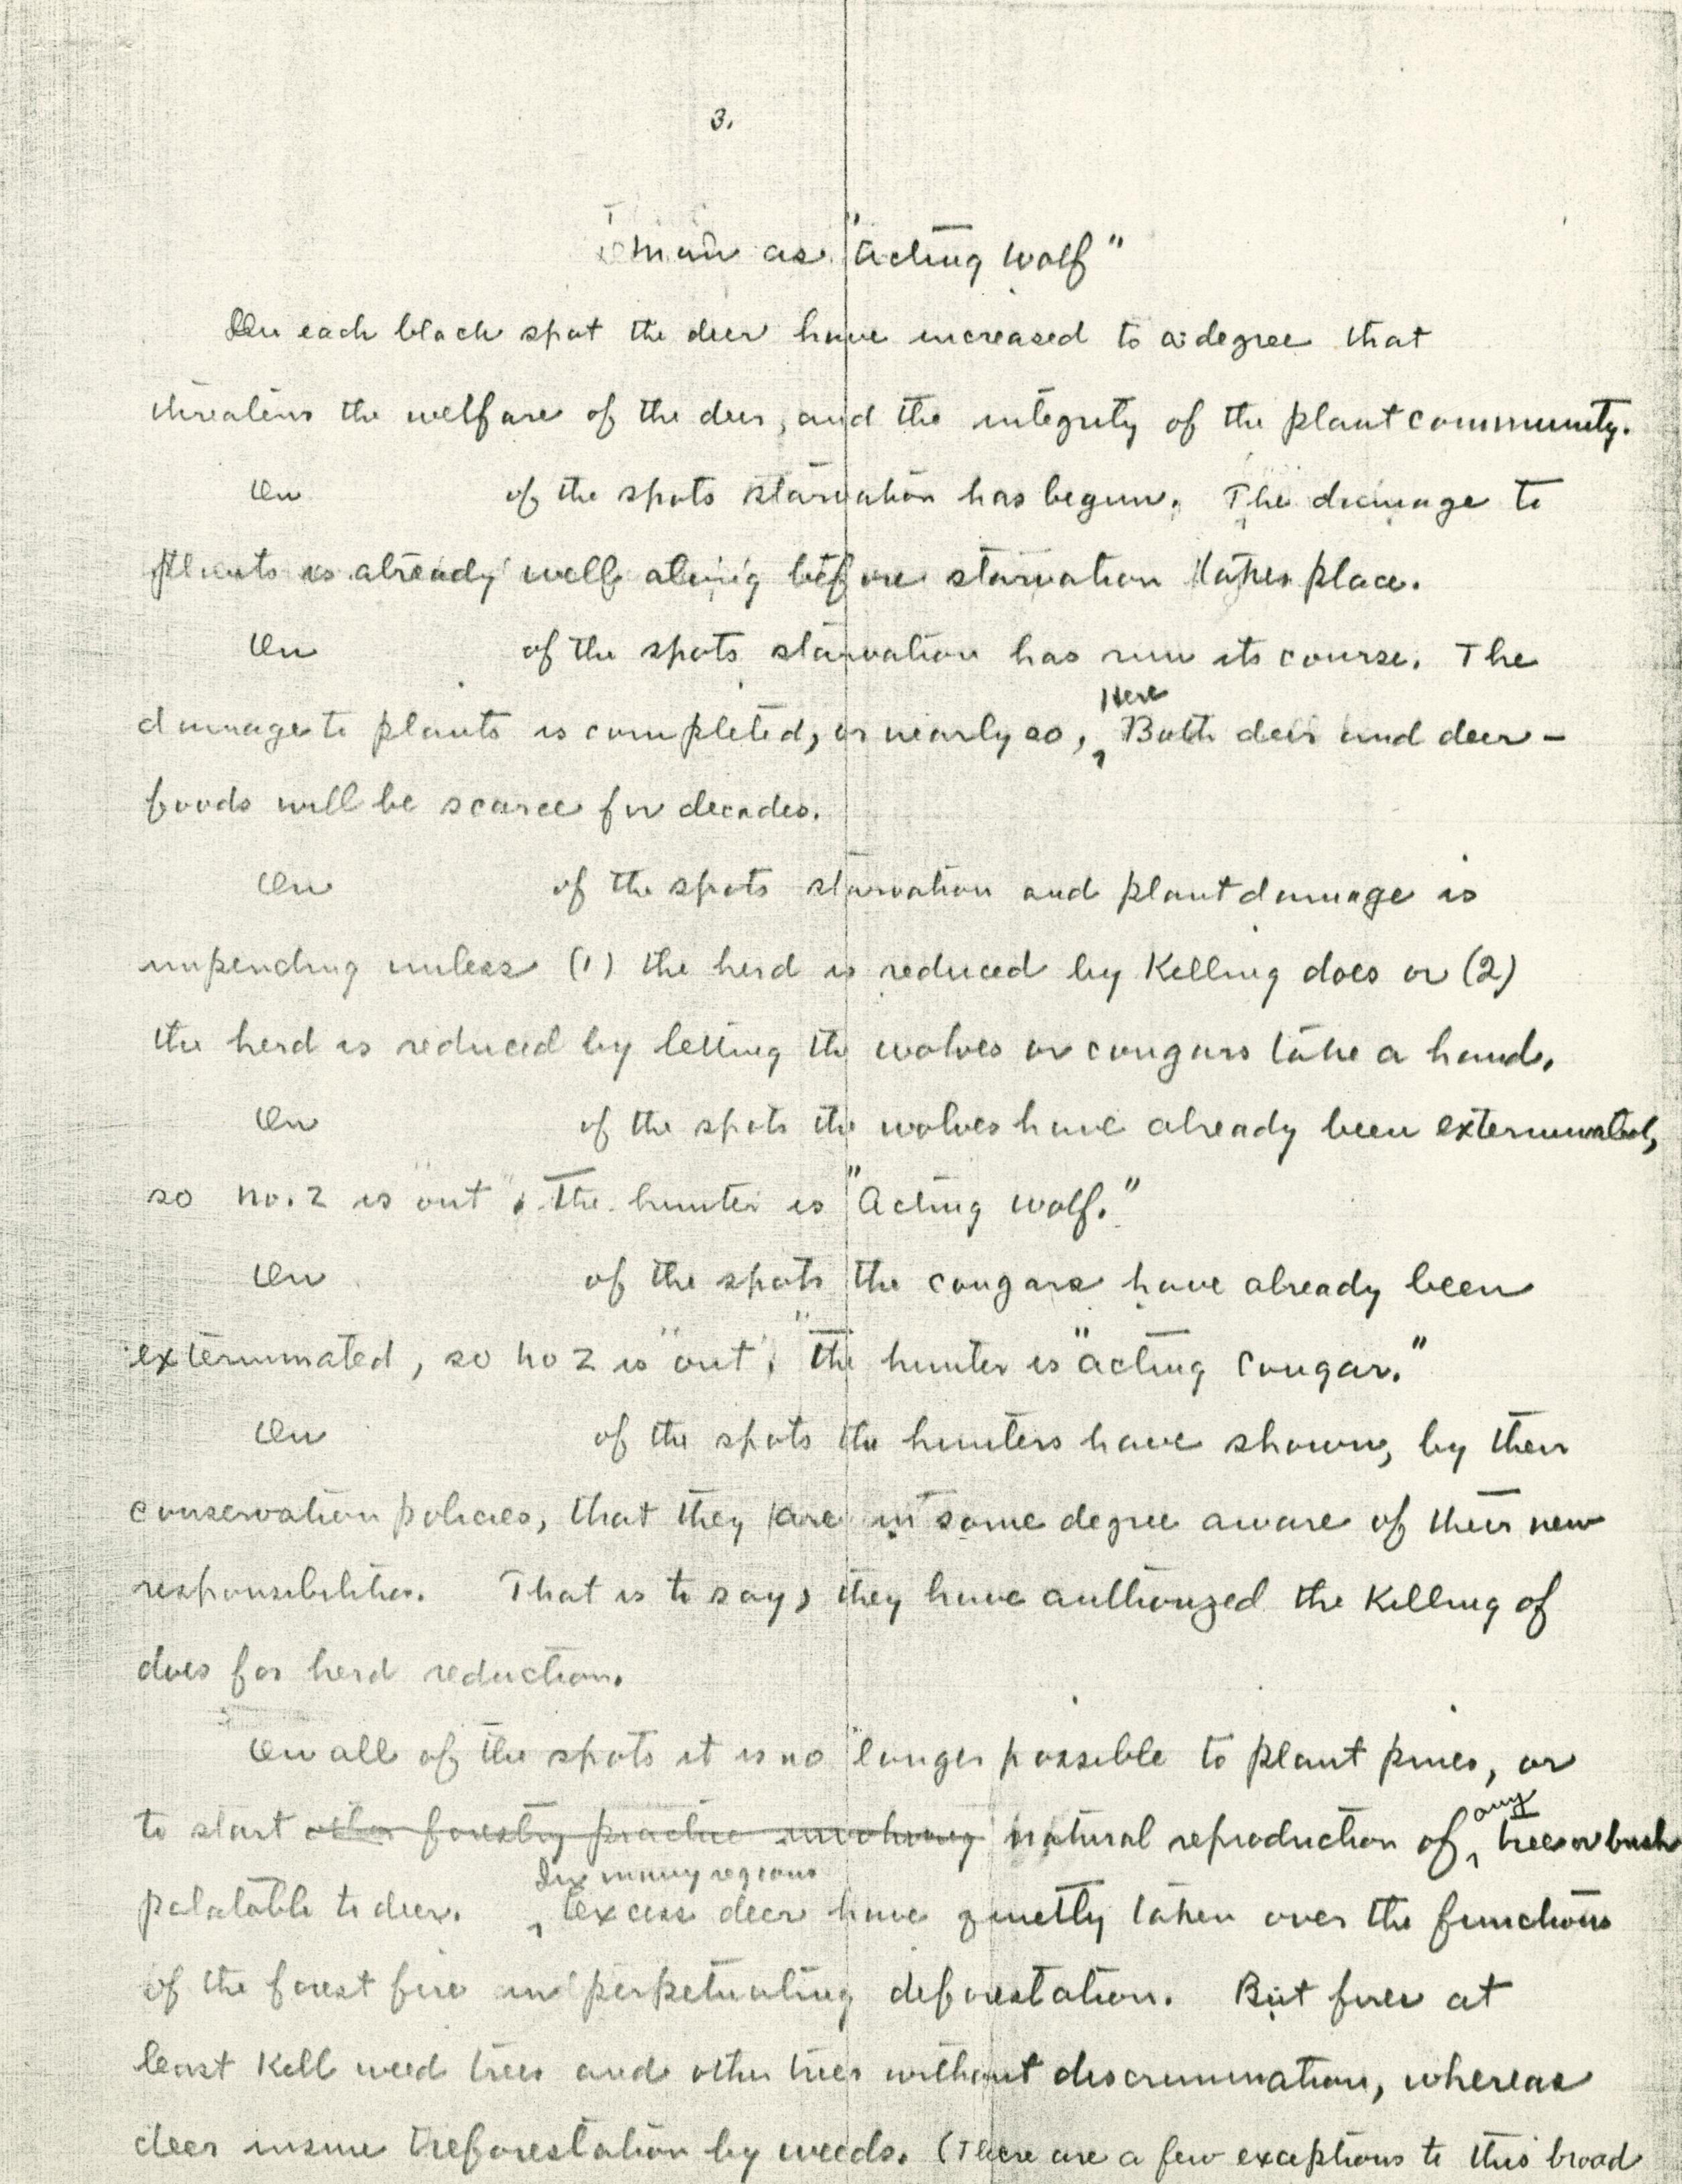 3.
Man as "Acting Wolf"
On each black spot the deer have increased to a degree that
threatens the welfare of the deer, and the integrity of the plant community.
On of the spots starvation has begun. The damage to
plants is already well along before starvation takes place.
On of the spots starvation has run its course. The
damage to plants is completed, or nearly so, Here Both deer and deer-
foods will be scarce for decades.
On of the spots starvation and plant damage is
impending unless (1) the herd is reduced by killing does or (2)
the herd is reduced by letting the wolves or cougars take a hand.
On of the spots the wolves have already been exterminated,
so no. 2 is "out". The hunter is "Acting Wolf."
On of the spots the cougars have already been
exterminated, so no 2 is "out"; the hunter is "acting cougar."
On of the spots the hunters have shown, by their
conservation policies, that they are in some degree aware of their new
responsibilities. That is to say, they have authorized the killing of
does for herd reduction.
On all of the spots it is no longer possible to plant pines, or
to start other forestry practice involving natural reproduction of any tree or bush
palatable to deer. In many regions excess deer have quietly taken over the functions
of the forest fire in perpetuating deforestation. But fires at
least kill weed trees and other trees without discrimination, whereas
deer insure reforestation by weeds. (There are a few exceptions to this broad